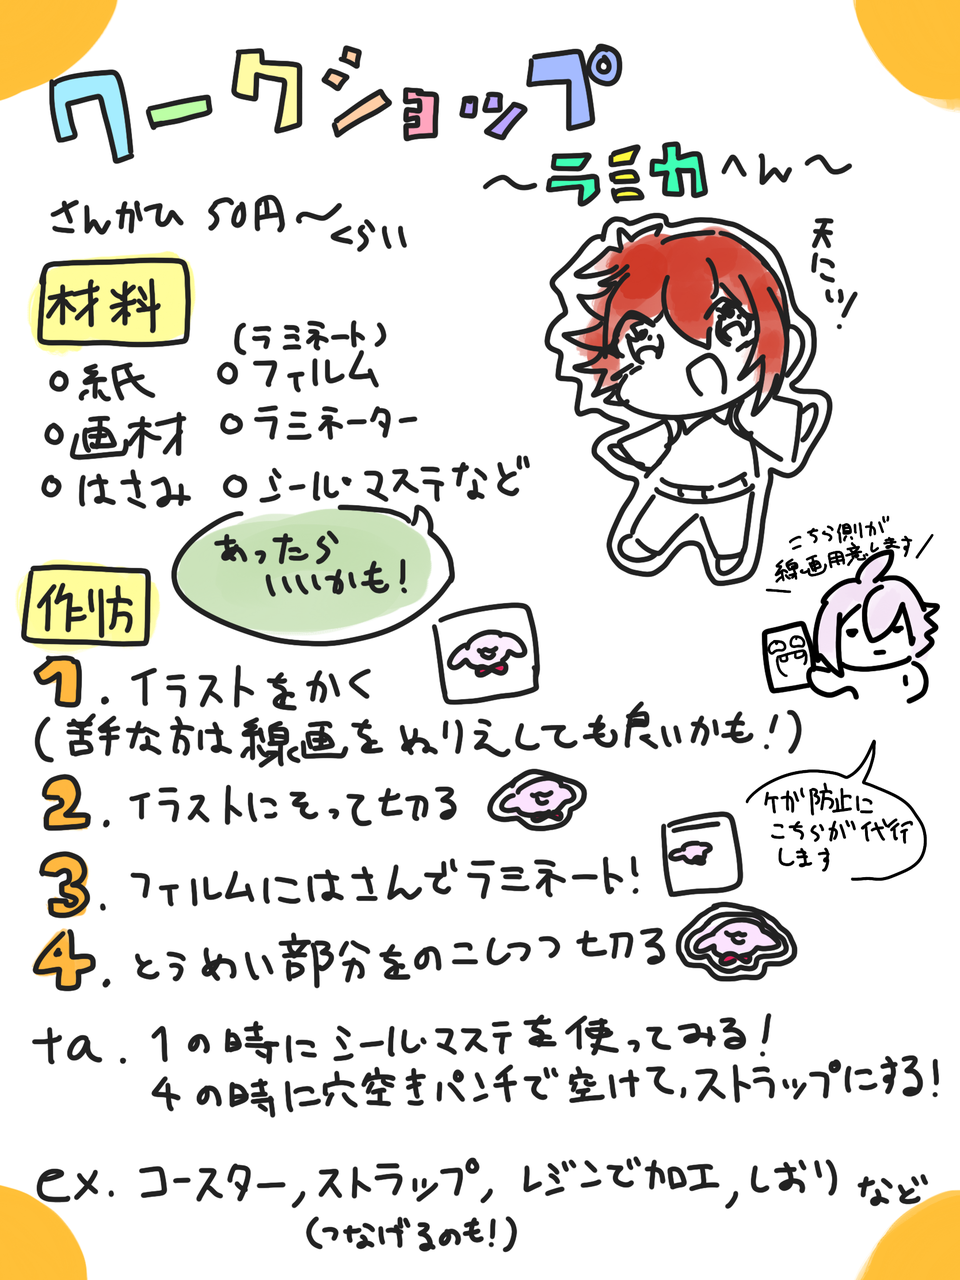 ワークショップ
〜ラミカへん〜
さんかひ 50円〜くらい
天にぃ!
材料
○紙
○画材
○はさみ
(ラミネート)
○フィルム
○ラミネーター
○シール・マステなど
あったら
いいかも!
こちら側が
線画用意します
作り方
1.イラストをかく
(苦手な方は線画をぬりえしても良いかも!)
2.イラストにそって切る
ケガ防止に
こちらが代行
します
3.フィルムにはさんでラミネート!
4.とうめい部分をのこしつつ切る
+a.1の時にシール・マステを使ってみる!
4の時に穴空きパンチで空けて,ストラップにする!
ex.コースター,ストラップ,レジンで加工,しおりなど
(つなげるのも!)